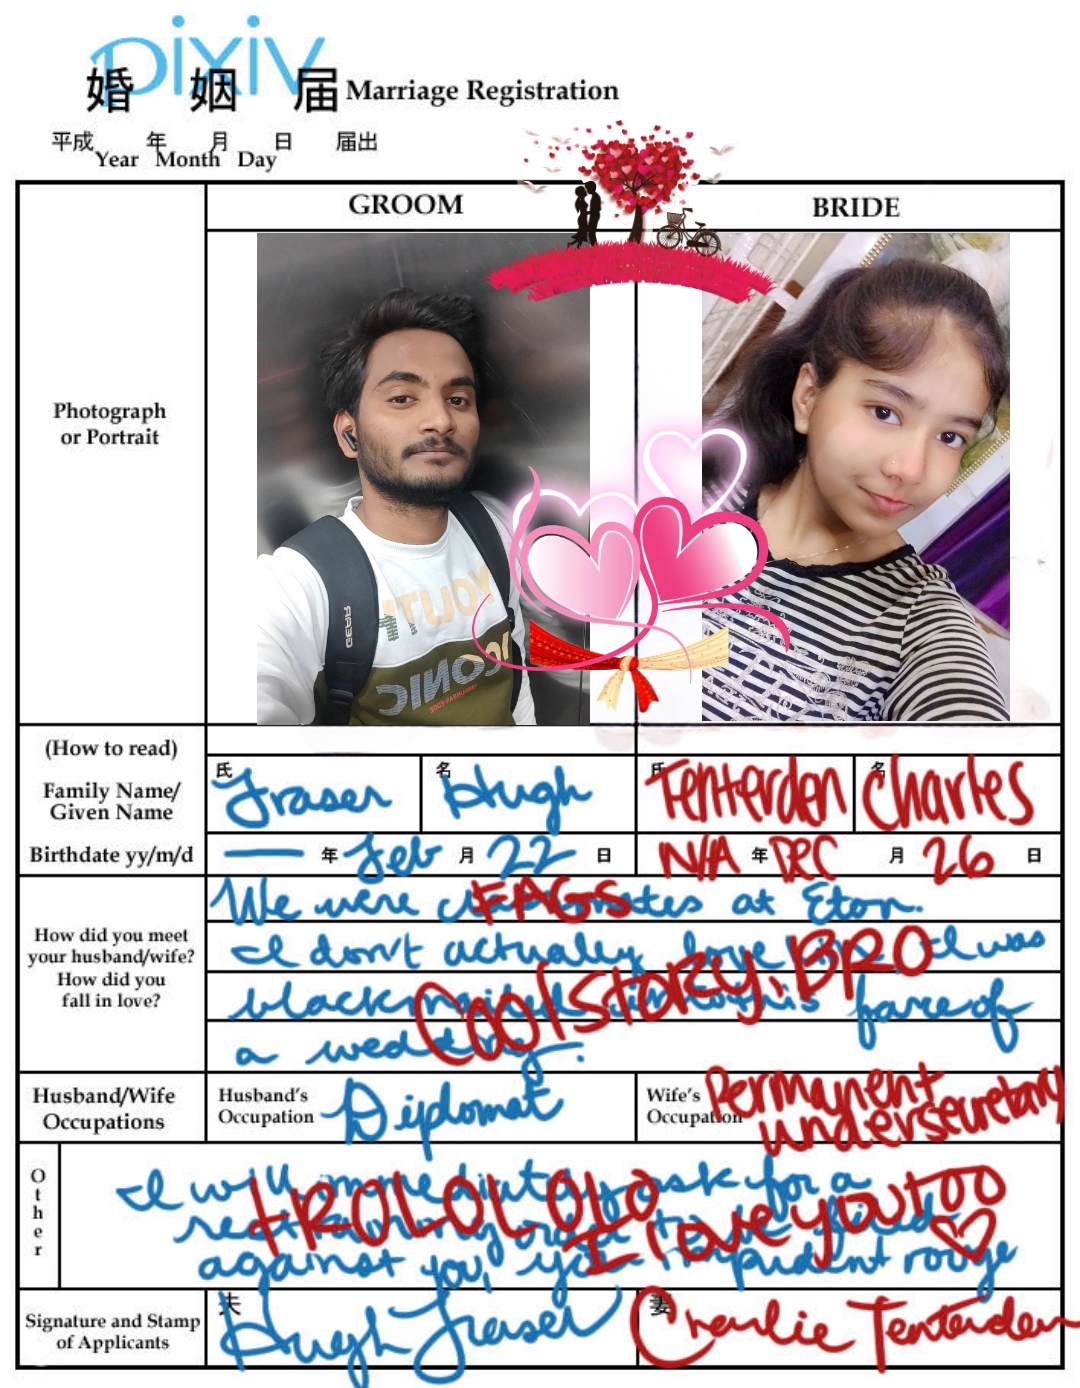 pixiv
婚 姻 届 Marriage Registration
平成 年 月 日 届出
Year Month Day
GROOM
BRIDE
Photograph
or Portrait
YOUTH
ICONIC
(How to read)
Family Name/
Given Name
氏 Fraser
名 Hugh
氏 Tenterden
名 Charles
Birthdate yy/m/d
— 年 Feb 月 22 日
N/A 年 DEC 月 26 日
How did you meet
your husband/wife?
How did you
fall in love?
We were FAGS at Eton.
I don't actually love I was
blackmailed into this farce of
a wedding.
COOl STORY, BRO
Husband/Wife
Occupations
Husband's
Occupation
Diplomat
Wife's
Occupation
Permanent
undersecretary
Other
I will immediately ask for a
restraining order to be filed
against you, you impudent rouge
tROLOLOLO
I love you too
Signature and Stamp
of Applicants
夫 Hugh Fraser
妻 Charlie Tenterden